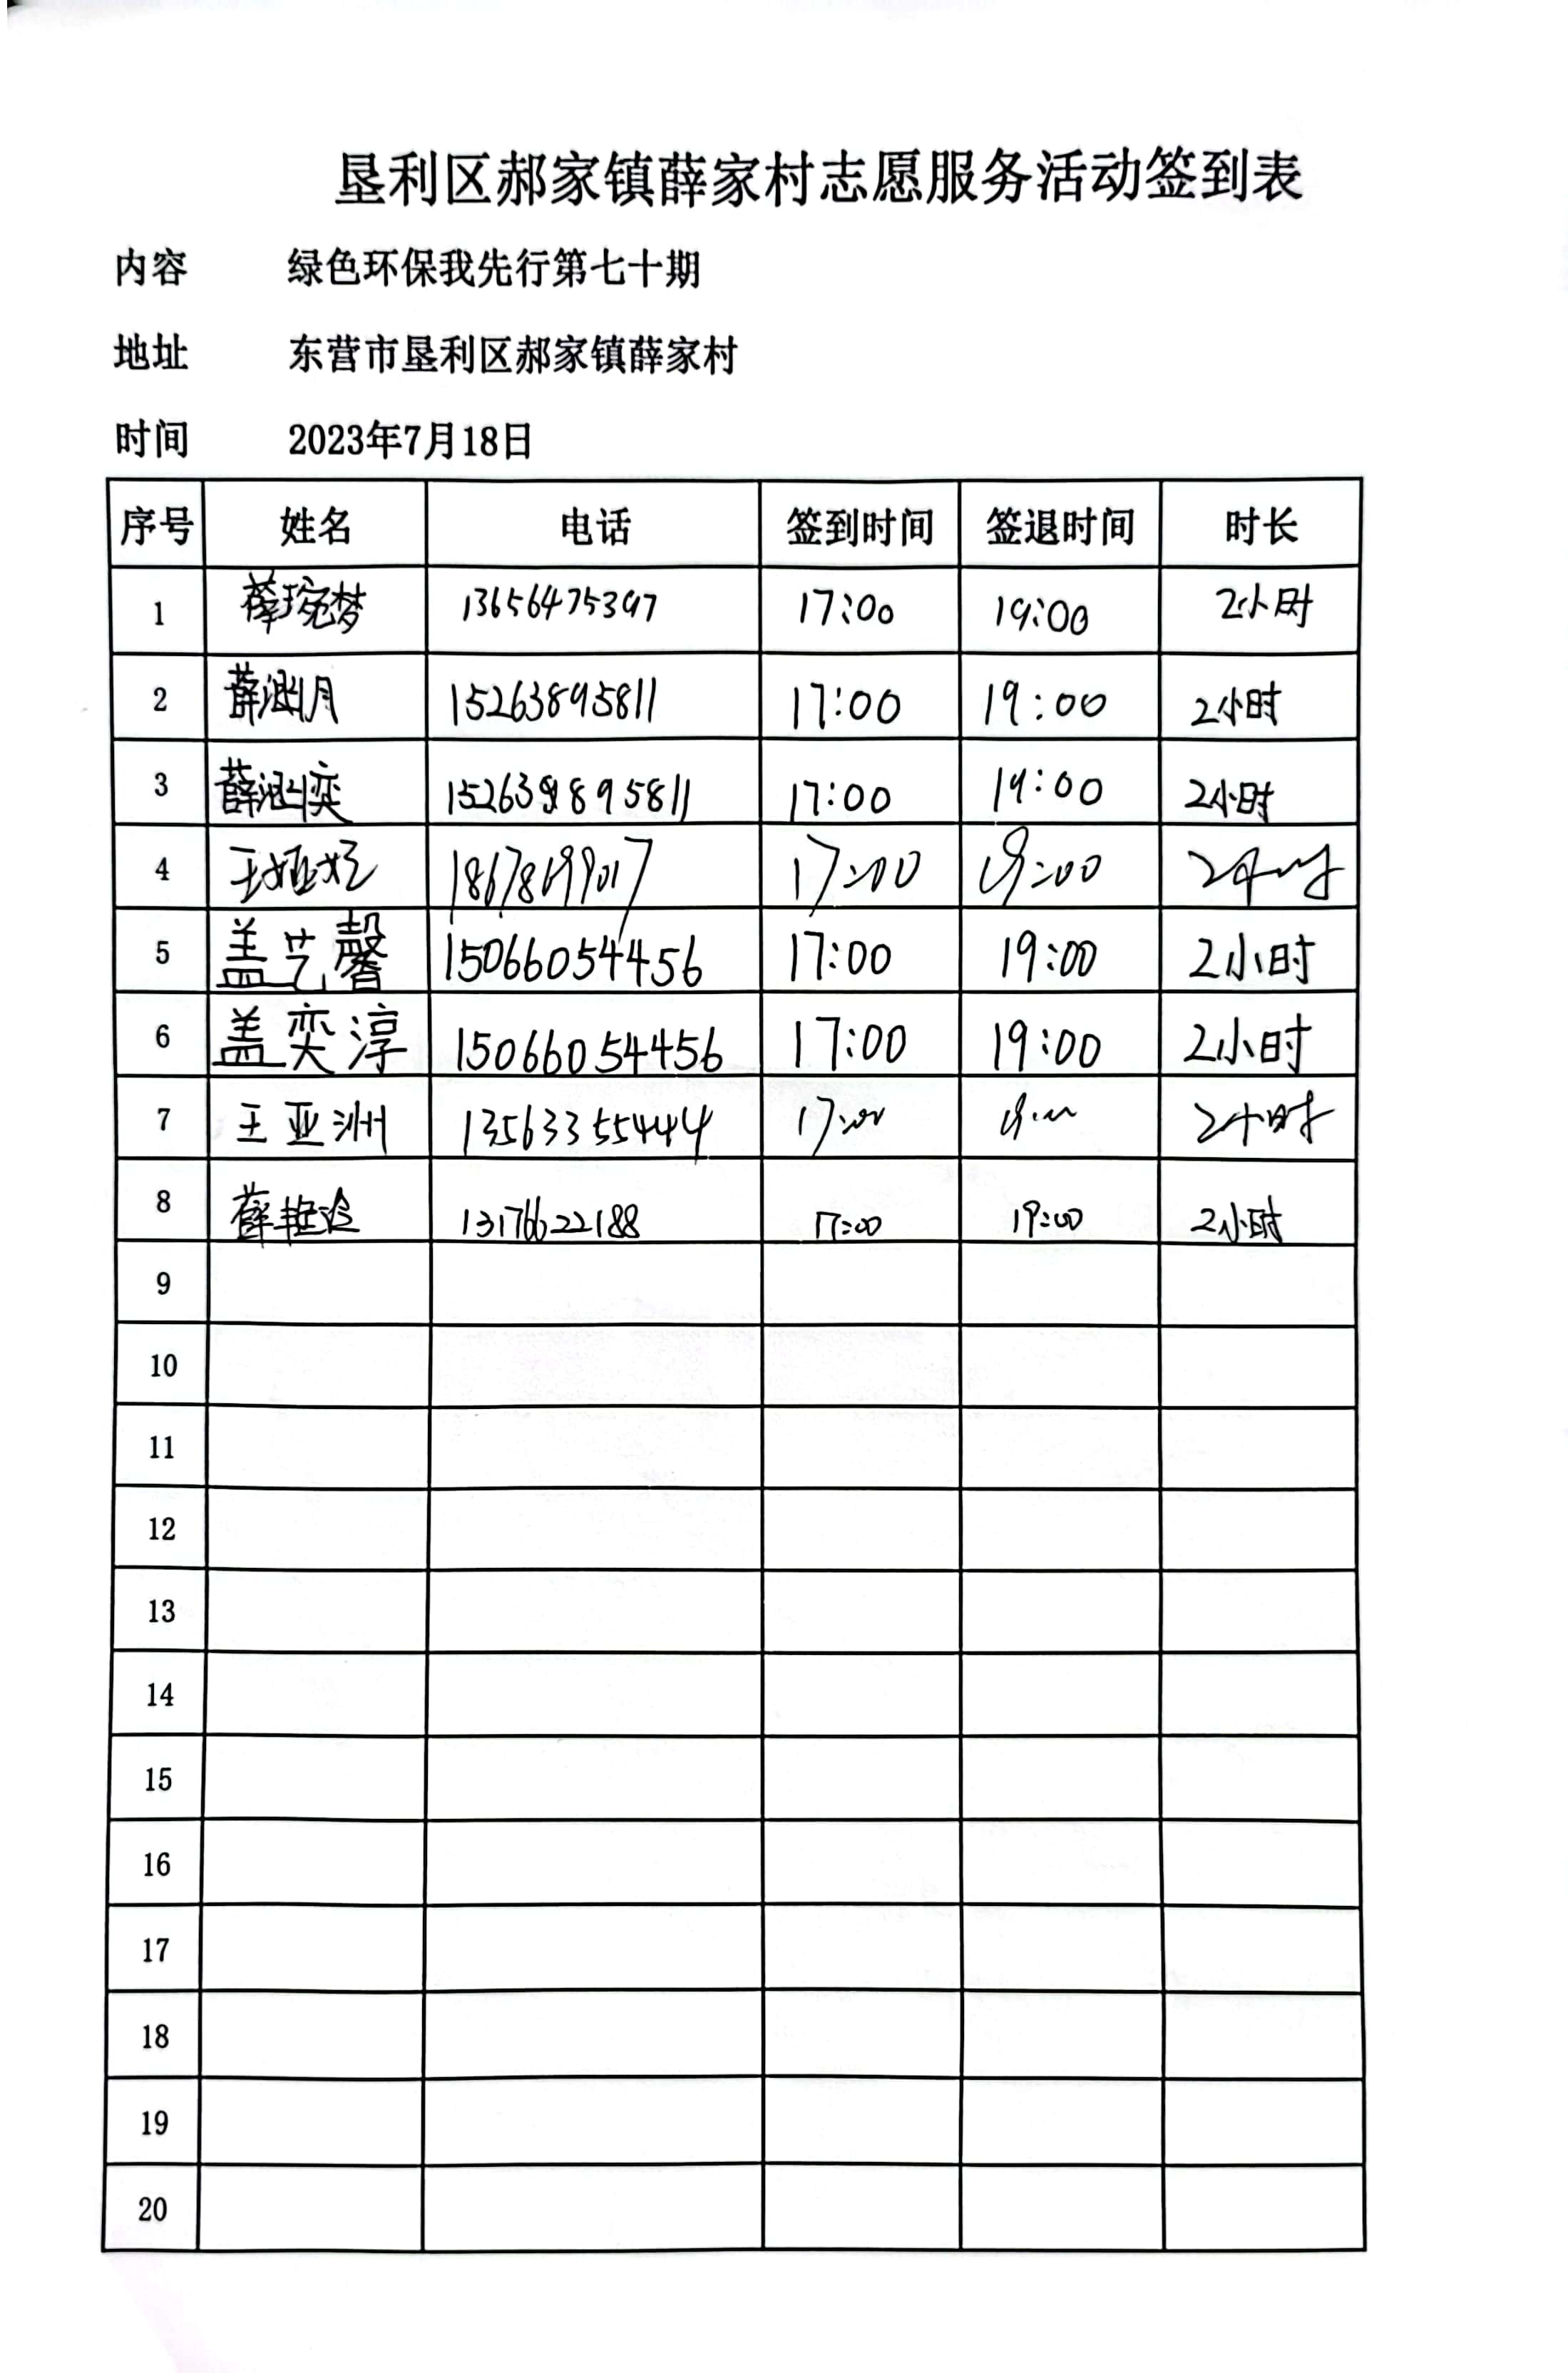 垦利区郝家镇薛家村志愿服务活动签到表
内容 绿色环保我先行第七十期
地址 东营市垦利区郝家镇薛家村
时间 2023年7月18日
序号 姓名 电话 签到时间 签退时间 时长
1 薛琬梦 13656475397 17:00 19:00 2小时
2 薛涵月 15263895811 17:00 19:00 2小时
3 薛涵奕 17:00 19:00 2小时
4 17:00 19:00 2小时
5 盖艺馨 15066054456 17:00 19:00 2小时
6 盖奕淳 15066054456 17:00 19:00 2小时
7 王亚洲 13563355444 17:00 19:00 2小时
8 薛 13176622188 17:00 19:00 2小时
9
10
11
12
13
14
15
16
17
18
19
20